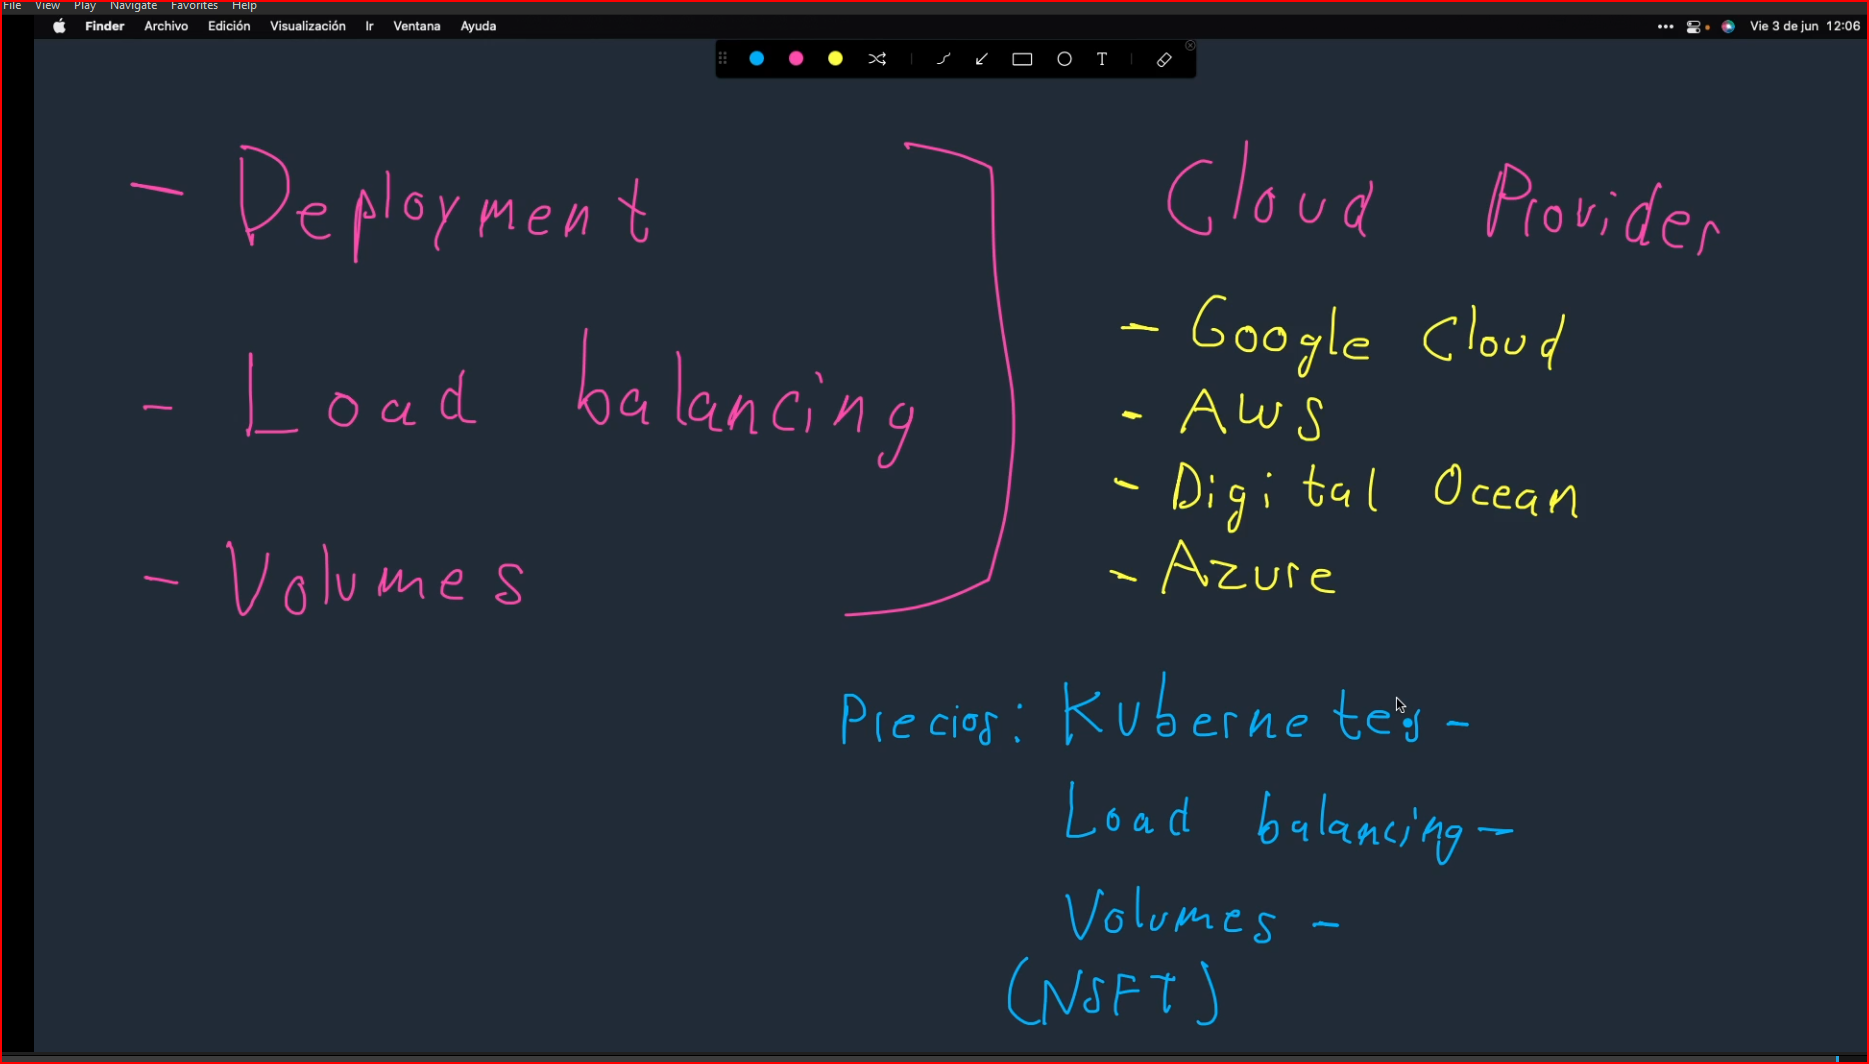 File View Play Navigate Favorites Help
Finder Archivo Edición Visualización Ir Ventana Ayuda Vie 3 de jun 12:06
T
- Deployment
- Load balancing
- Volumes
Cloud Provider
- Google Cloud
- AWS
- Digital Ocean
- Azure
Precios: Kubernetes -
Load balancing -
Volumes -
(NSFT)